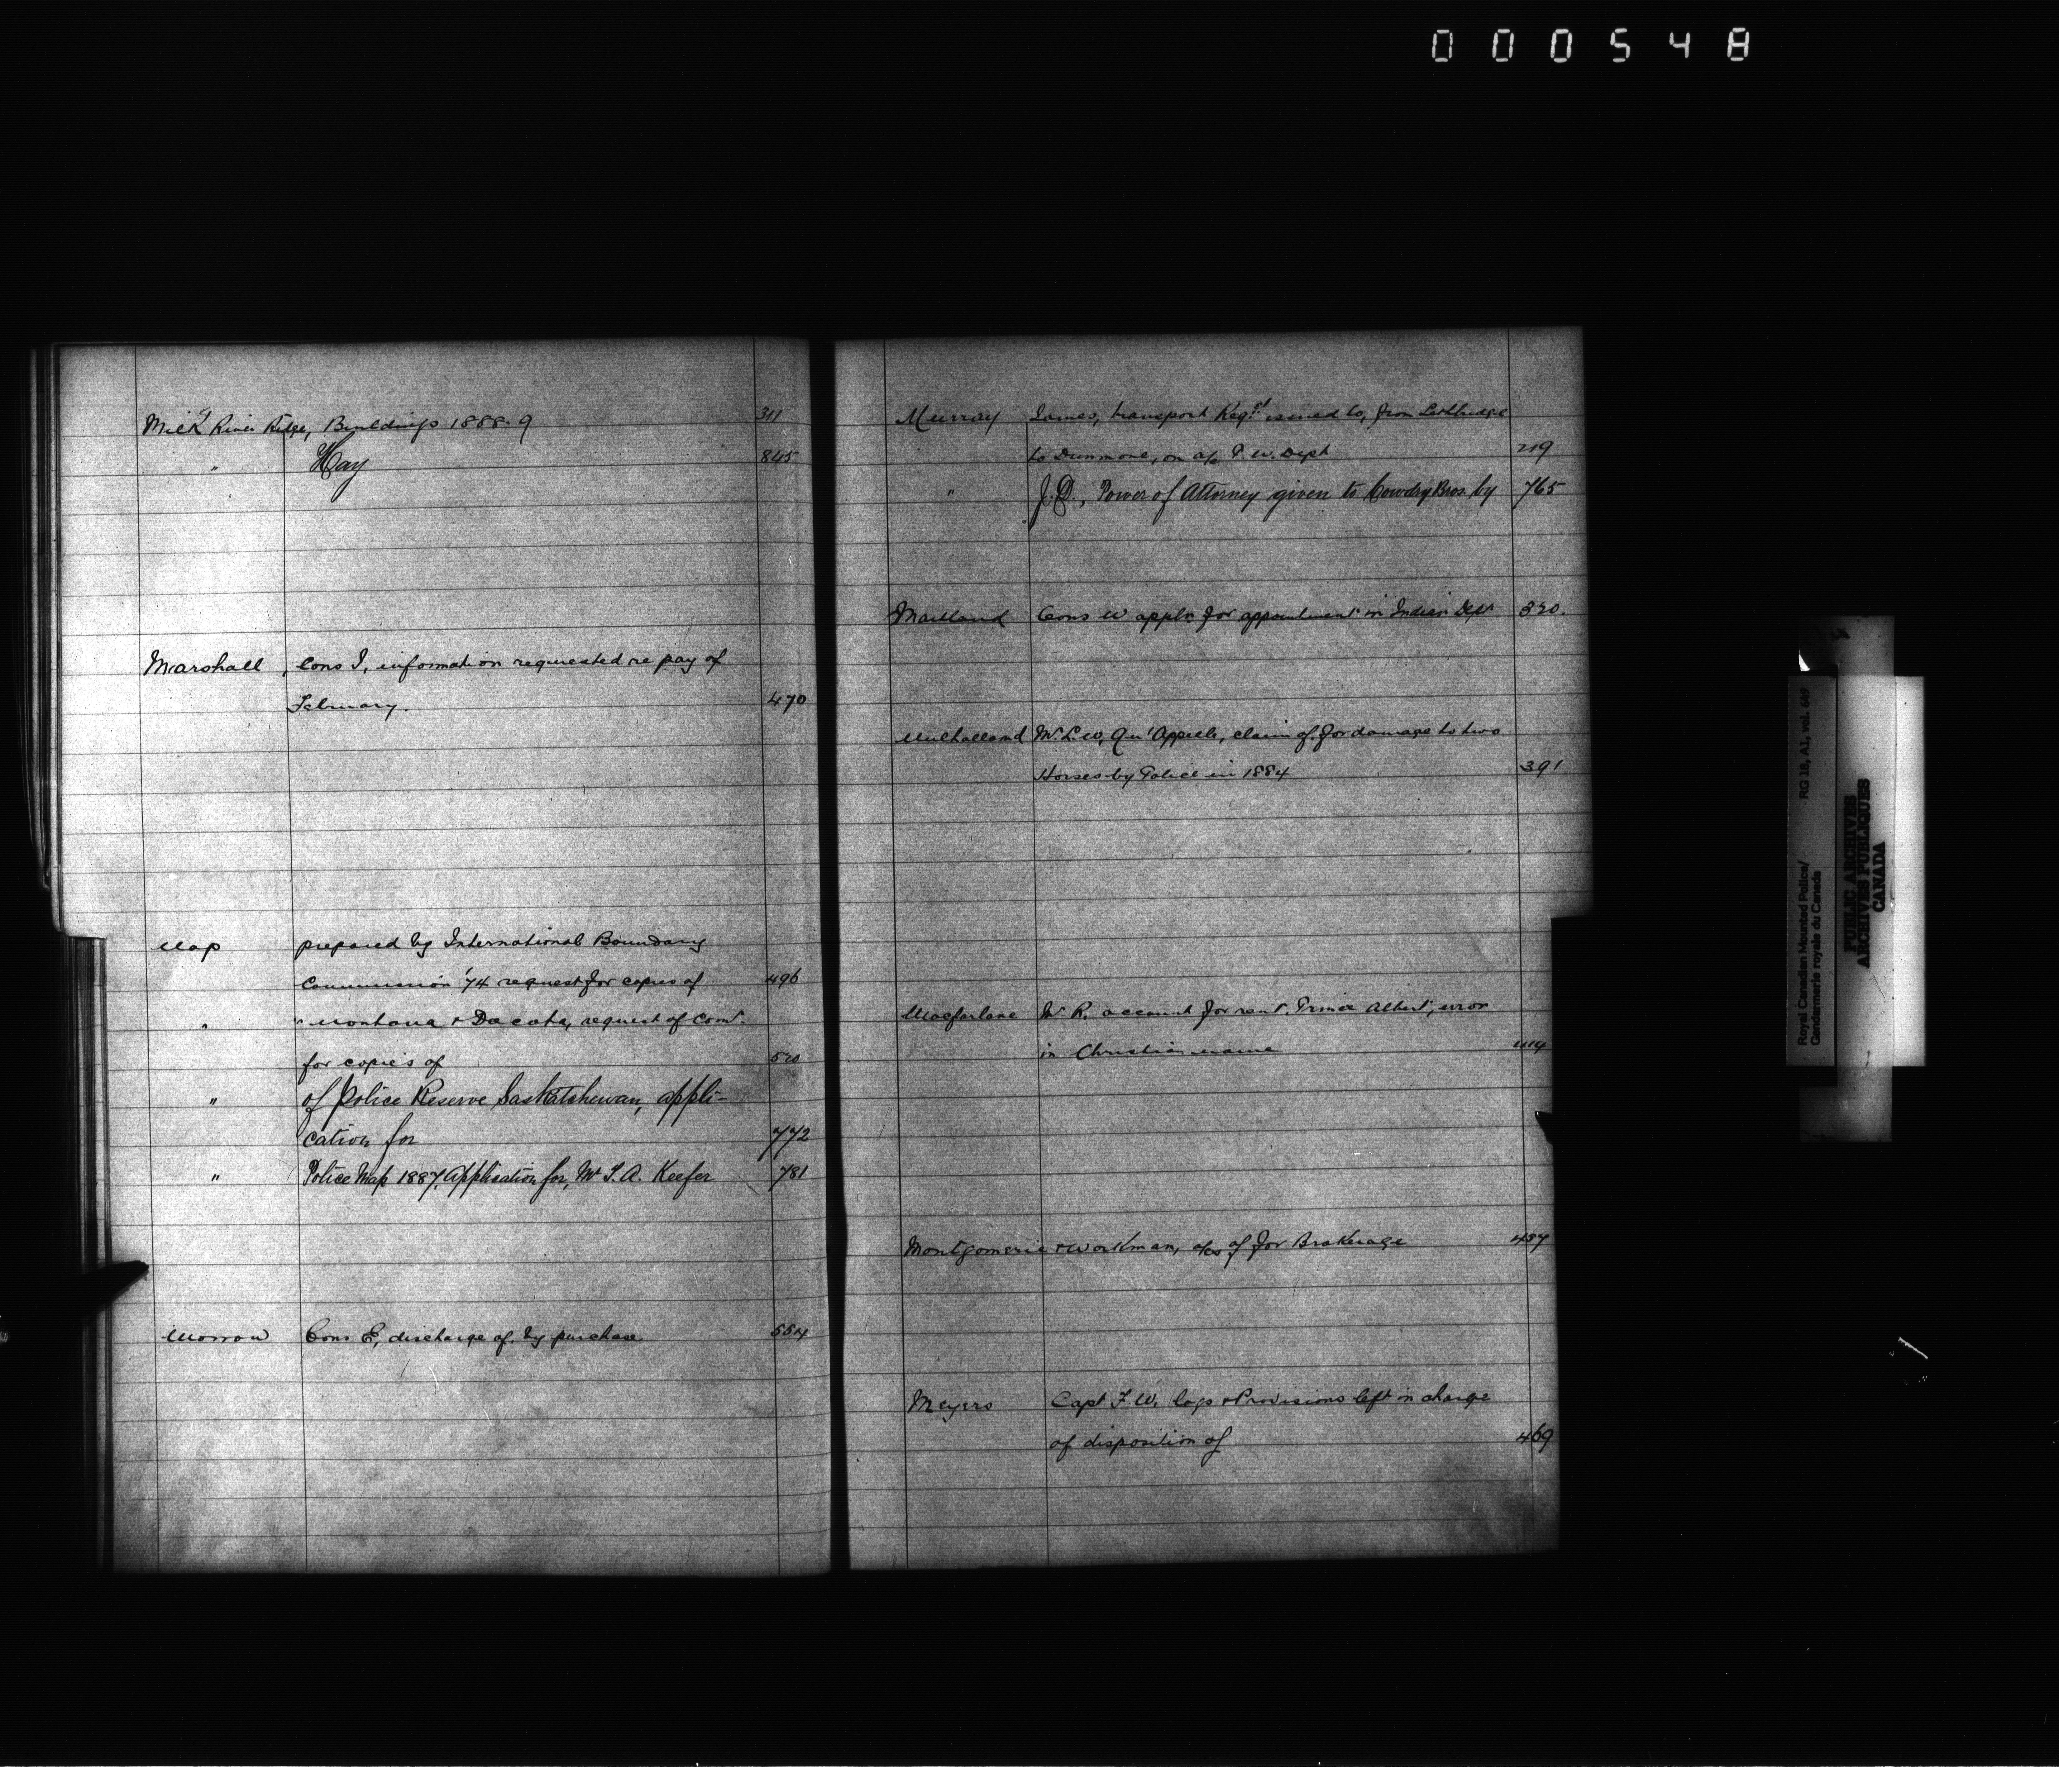 000548
Milk River Ridge, Buildings 1888-9 311
" Hay 845
Marshall, Cons J, information requested re pay of
February. 470
Map prepared by International Boundary
Commission '74 request for copies of 496
" " Montana & Dacota, request of Comr.
for copies of 520
" of Police Reserve Saskatchewan, appli-
cation for 772
" Police Map 1887, Application for, Mr T. A. Keefer 781
Morrow Cons E, discharge of, by purchase 554
Murray James, transport Reqst. issued to, from Lethbridge
to Dunmore, on a/c P. W. Dept 219
" J. D., Power of Attorney given to Cowdry Bros. by 765
Maitland Cons W appln for appointment in Indian Dept 320.
Mulholland Mr. L. W, Qu'Appelle, claim of, for damage to two
Horses by Police in 1884 391
Macfarlane Mr R. account for rent, Prince Albert, error
in Christian name 414
Montgomerie & Workman, a/cs of for Brokerage 457
Meyers Capt F. W. logs & Provisions left in charge
of disposition of 469
Royal Canadian Mounted Police/
Gendarmerie royale du Canada
RG 18, A1, vol. 649
PUBLIC ARCHIVES
ARCHIVES PUBLIQUES
CANADA